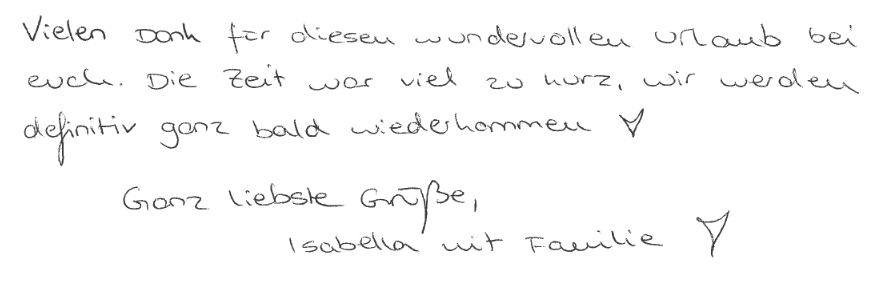 Vielen Dank für diesen wundervollen Urlaub bei
euch. Die Zeit war viel zu kurz, wir werden
definitiv ganz bald wiederkommen ♡
Ganz liebste Grüße,
Isabella mit Familie ♡